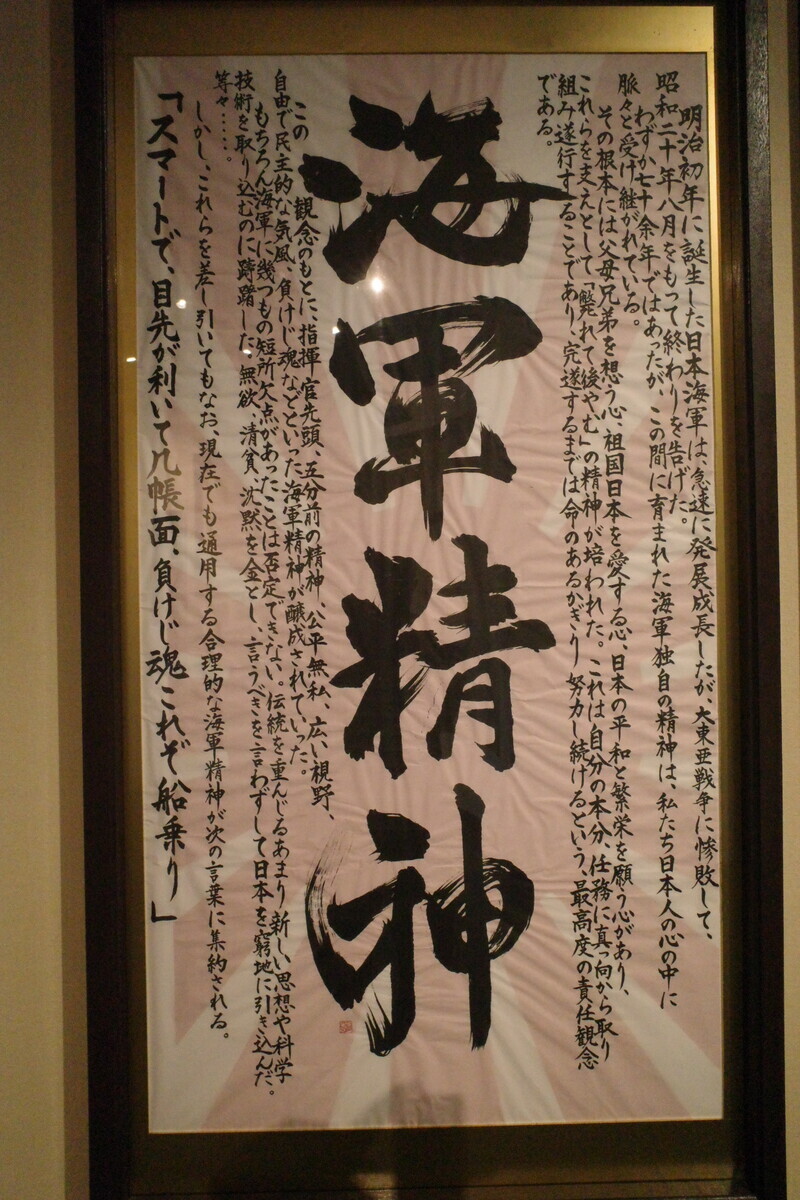 明治初年に誕生した日本海軍は、急速に発展成長したが、大東亜戦争に惨敗して、
昭和二十年八月をもって終わりを告げた。
わずか七十余年ではあったが、この間に育まれた海軍独自の精神は、私たち日本人の心の中に
脈々と受け継がれている。
その根本には父母兄弟を想う心、祖国日本を愛する心、日本の平和と繁栄を願う心があり、
これらを支えとして「斃れて後やむ」の精神が培われた。これは自分の本分、任務に真っ向から取り
組み遂行することであり、完遂するまでは命のあるかぎり努力し続けるという、最高度の責任観念
である。
海軍精神
この観念のもとに、指揮官先頭、五分前の精神、公平無私、広い視野、
自由で民主的な気風、負けじ魂などといった海軍精神が醸成されていった。
もちろん海軍に幾つもの短所欠点があったことは否定できない。伝統を重んじるあまり新しい思想や科学
技術を取り込むのに躊躇した、無欲、清貧、沈黙を金とし、言うべきを言わずして日本を窮地に引き込んだ。
等々……。
しかし、これらを差し引いてもなお、現在でも通用する合理的な海軍精神が次の言葉に集約される。
「スマートで、目先が利いて几帳面、負けじ魂これぞ船乗り」